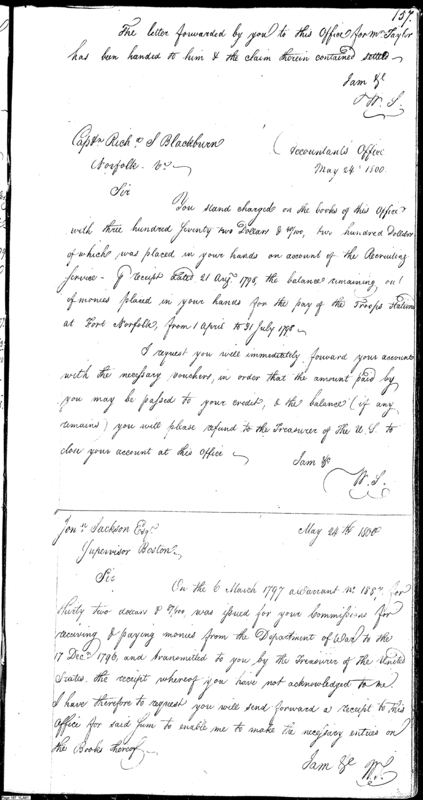 157.
The letter forwarded by you to this Office for Mr. Taylor
has been handed to him & the claim therein contained settled
I am &c
W. S.
Captn Richd S Blackburn
Norfolk Va.
Accountants Office
May 24th 1800
Sir
You stand charged on the books of this Office
with three hundred Seventy two Dollars & /100, two hundred Dollars
of which, was placed in your hands on account of the Recruiting
Service - receipt dated 21 Augt. 1798, the balance remaining out
of monies placed in your hands for the pay of the Troops Stationed
at Fort Norfolk, from 1 April to 31 July 1798
I request you will immediately forward your accounts
with the necessary vouchers, in order that the amount paid by
you may be passed to your credit, & the balance (if any
remains) you will please refund to the Treasurer of the U. S. to
close your account at this Office
I am &c
W. S.
Jonn. Jackson Esqr.
Supervisor Boston
May 24th 1800
Sir
On the 6 March 1797 a warrant No. 1887, for
thirty two dollars & /100, was issued for your Commissions for
receiving & paying monies from the Department of War to the
17 Decr. 1796, and transmitted to you by the Treasurer of the United
States, the receipt whereof you have not acknowledged to me
I have therefore to request you will send forward a receipt to this
Office for said Sum to enable me to make the necessary entries on
the Books thereof
I am &c
W. S.